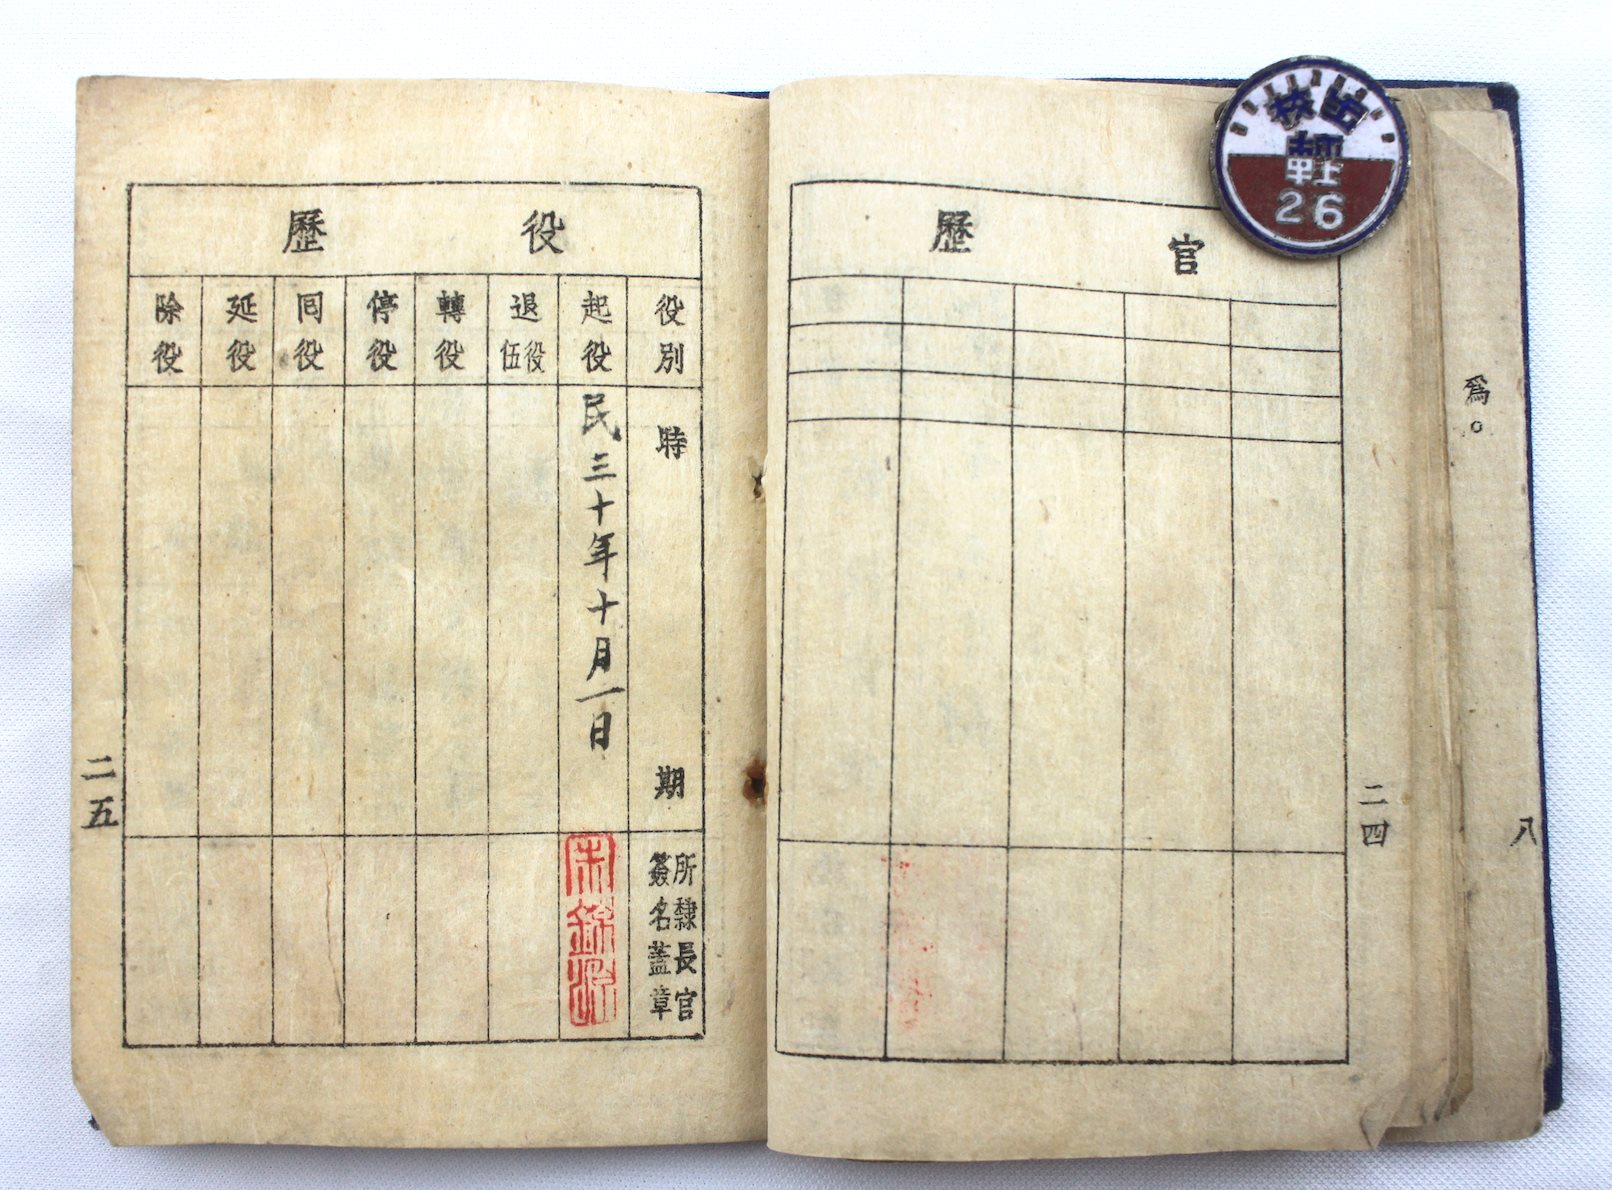 為。
八
甲上
26
官歷
二四
役歷
役別
時期
所隸長官
簽名蓋章
起役
民三十年十月一日
朱錦源
退役伍
轉役
停役
囘役
延役
除役
二五